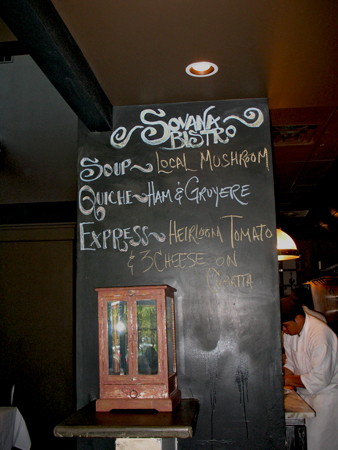 ~Sovana~
Bistro
Soup~Local Mushroom
Quiche~Ham & Gruyere
Express~Heirloom Tomato
& 3 Cheese on
Ciabatta